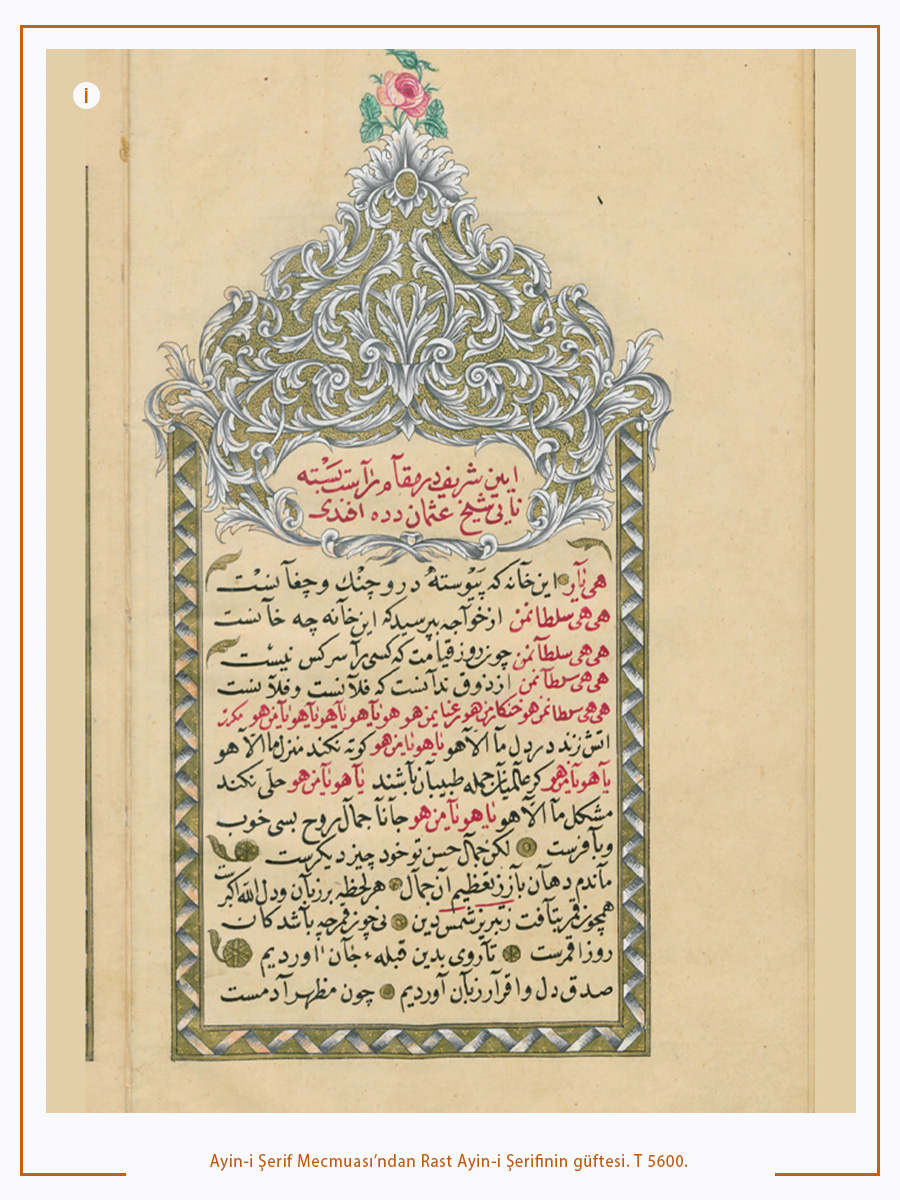 i
آیین شریف در مقآم رآست بسته
نایی شیخ عثمان دده افندی
هی یآر این خآنه که پیوسته در و چنك و چغآنست
هی هی سلطآنمن از خوآجه بپرسید که این خآنه چه خآنست
هی هی سلطآنمن چون روز قیامت که کسی رآ سر کس نیست
هی هی سلطآنمن از ذوق ندآنست که فلآنست و فلآنست
هی هی سلطآنمن هو خنکارمن هو یآهو یآهو یآهو یآمن هو مکرر
اتش زند در دل مآ الآ هو یآهو یآمن هو کوته نکند منزل ما الآ هو
یآهو یآمن هو کر عآلمیآن جمله طبیبآن بآشند یآهو یآمن هو حلی نکند
مشکل مآ الآ هو یآهو یآمن هو جآنآ جمآل روح بسی خوب
وبآفرست لکن جمآل حسن تو خود چیز دیکرست
مآندم دهآن بآز ز تعظیم آن جمآل هر لحظه بر زبآن ودل الله اکبرست
همچو قمر بتآفت ز تبریز شمس دین نی خود قمر چه بآشد کان
روز اقمرست تآ روی بدین قبلهء جآن اوردیم
صدق دل واقرآر زبآن آوردیم چون مظهر آدمست
Ayin-i Şerif Mecmuası’ndan Rast Ayin-i Şerifinin güftesi. T 5600.